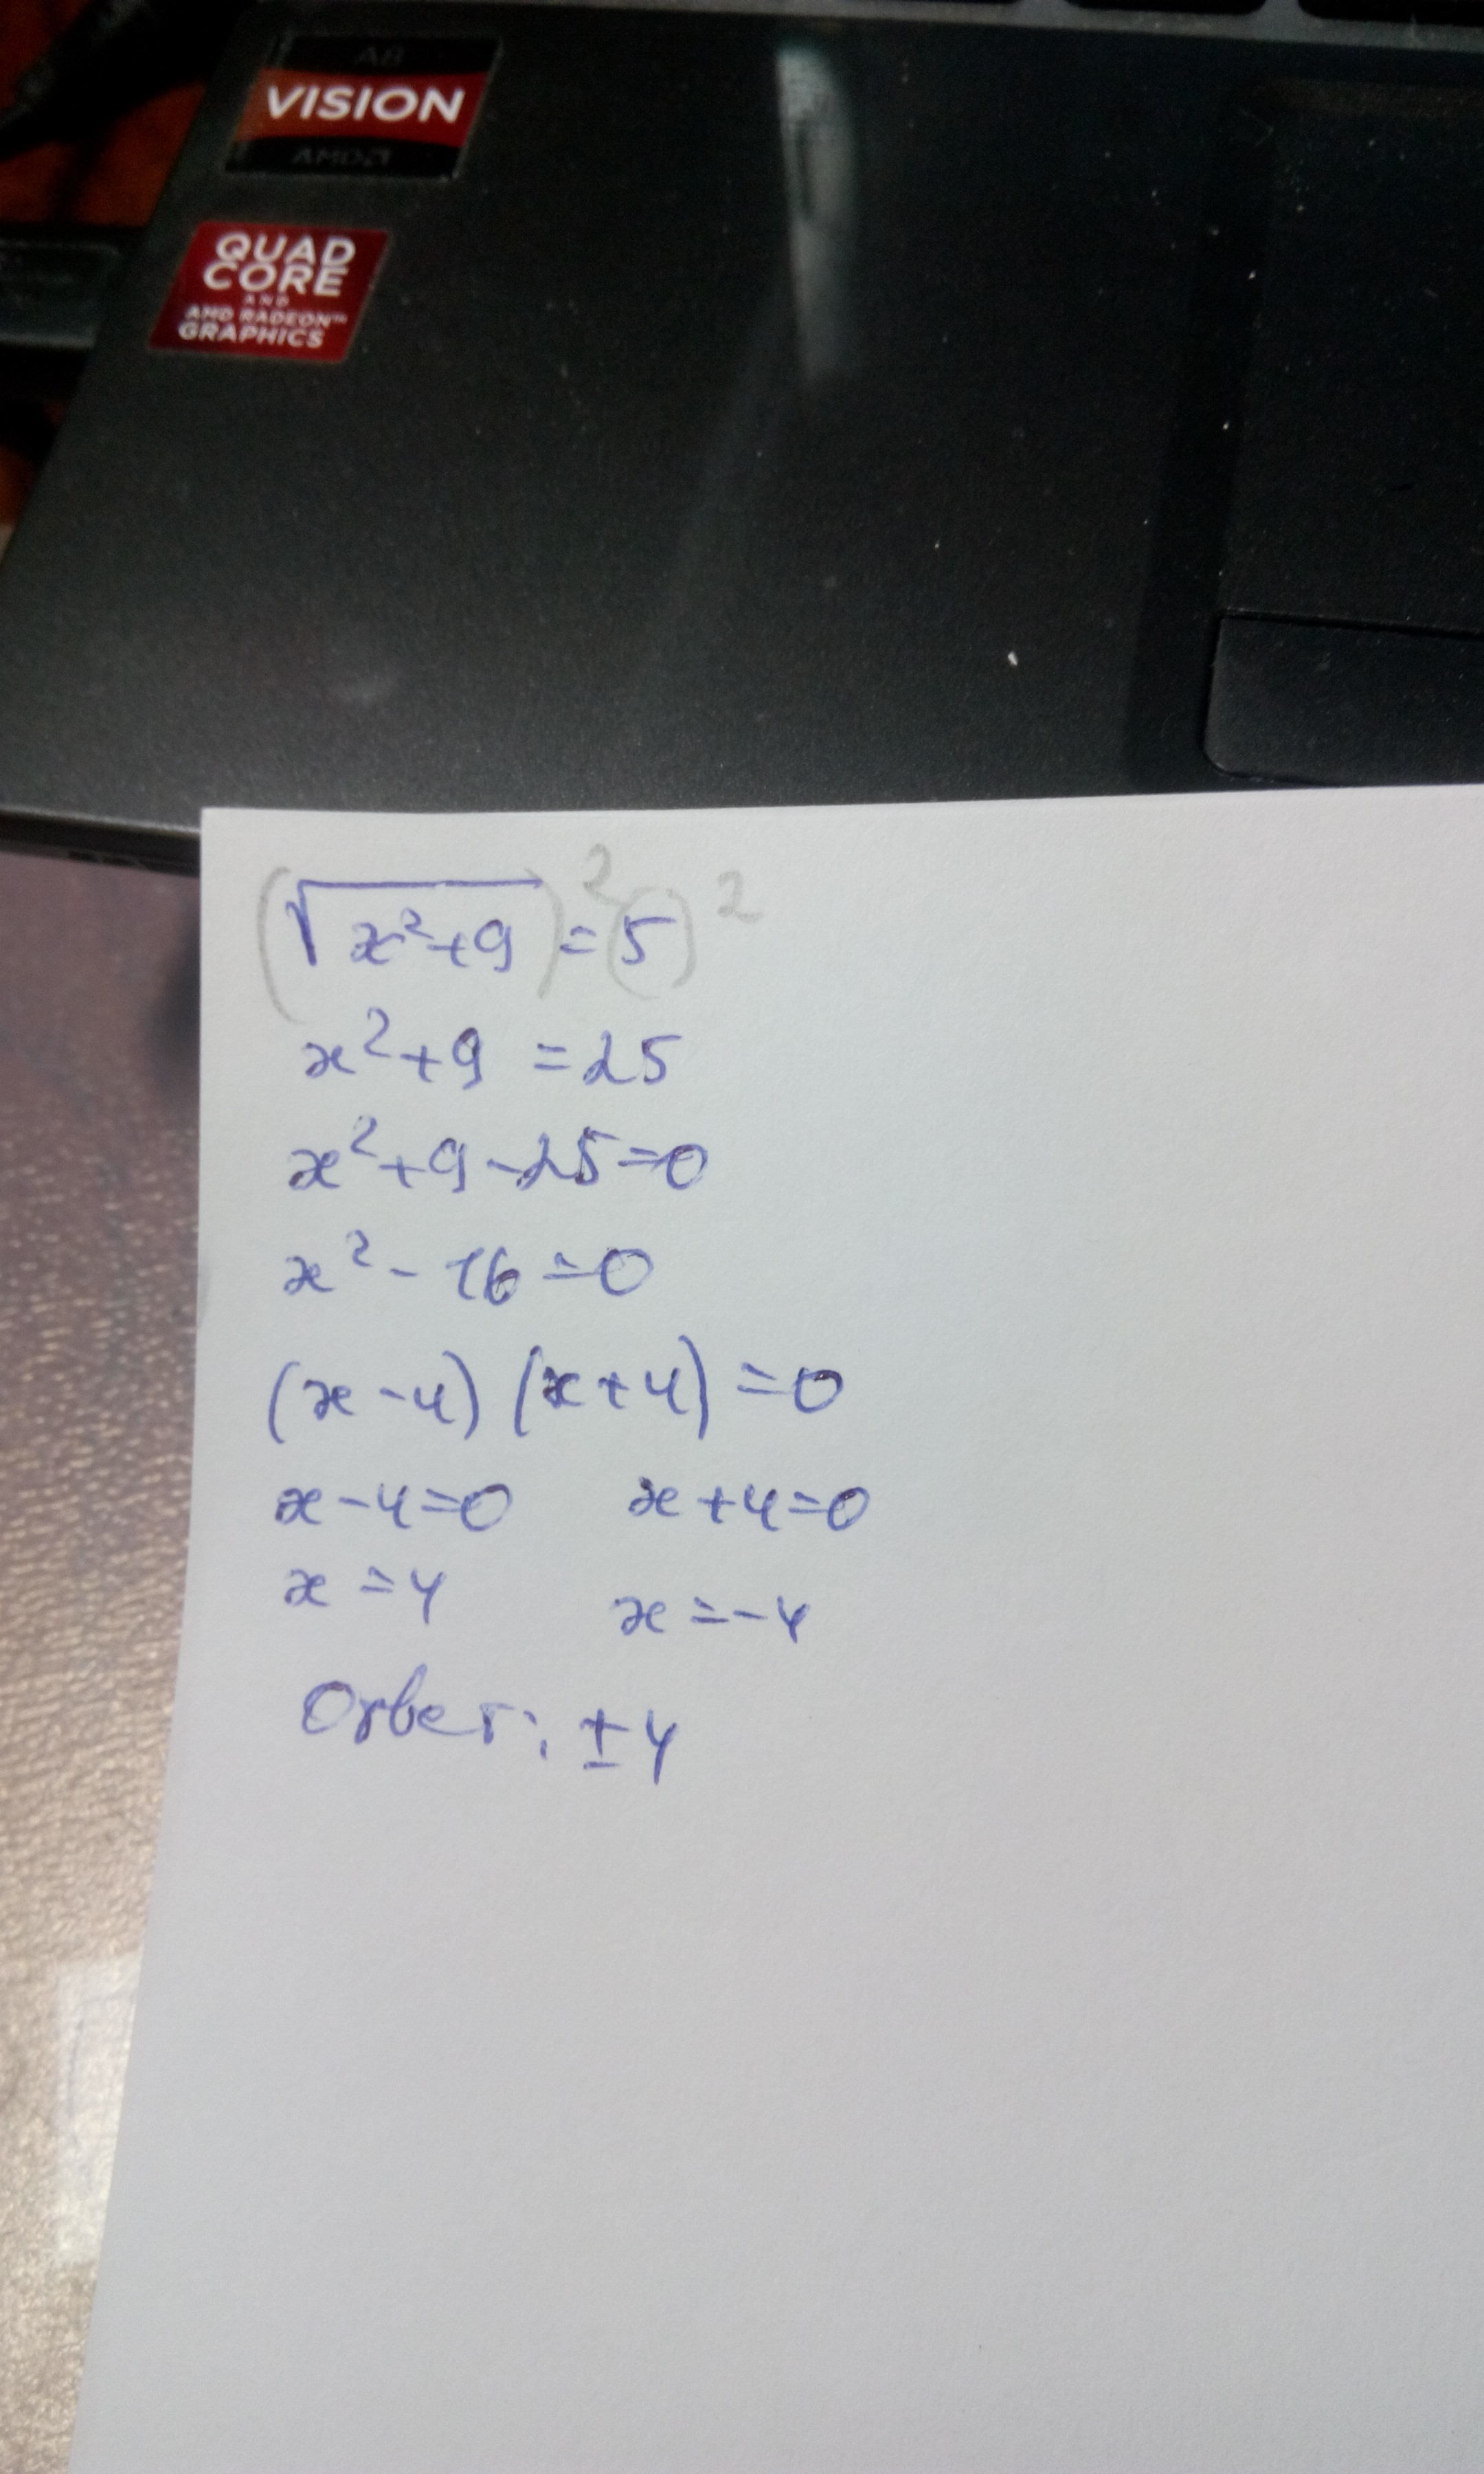 A8
VISION
AMD
QUAD
CORE
AND
AMD RADEON™
GRAPHICS
(√(x²+9))²=(5)²
x²+9=25
x²+9-25=0
x²-16=0
(x-4)(x+4)=0
x-4=0 x+4=0
x=4 x=-4
Ответ: ±4